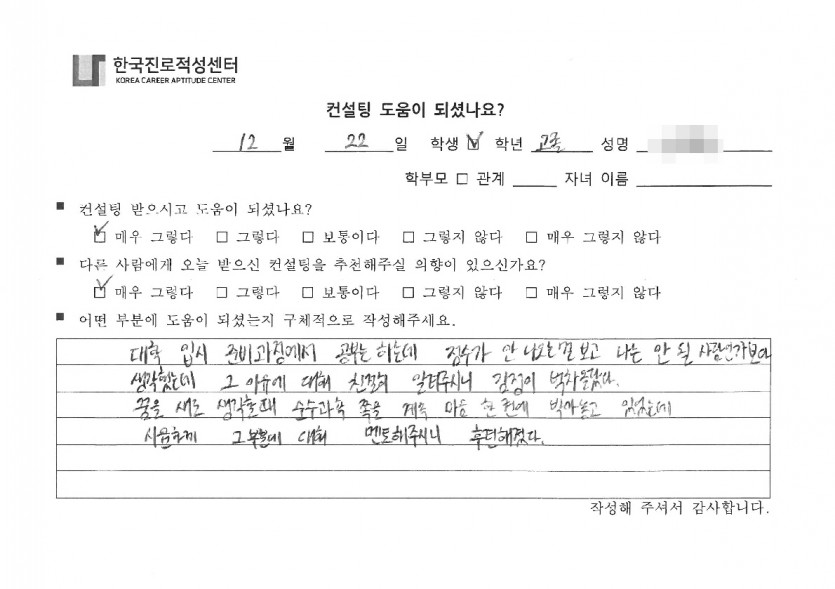 한국진로적성센터
KOREA CAREER APTITUDE CENTER
컨설팅 도움이 되셨나요?
12 월 22 일 학생 ☑ 학년 고졸 성명
학부모 □ 관계 자녀 이름
■ 컨설팅 받으시고 도움이 되셨나요?
☑ 매우 그렇다 □ 그렇다 □ 보통이다 □ 그렇지 않다 □ 매우 그렇지 않다
■ 다른 사람에게 오늘 받으신 컨설팅을 추천해주실 의향이 있으신가요?
☑ 매우 그렇다 □ 그렇다 □ 보통이다 □ 그렇지 않다 □ 매우 그렇지 않다
■ 어떤 부분에 도움이 되셨는지 구체적으로 작성해주세요.
대학 입시 준비과정에서 공부는 하는데 점수가 안 나오는걸 보고 나는 안 될 사람인가보다
생각했는데 그 이유에 대해 친절히 알려주시니 감정이 벅차올랐다.
꿈을 새로 생각할때 순수과학 쪽을 계속 마음 한 편에 박아놓고 있었는데
시원하게 그부분에 대해 멘토해주시니 후련해졌다.
작성해 주셔서 감사합니다.